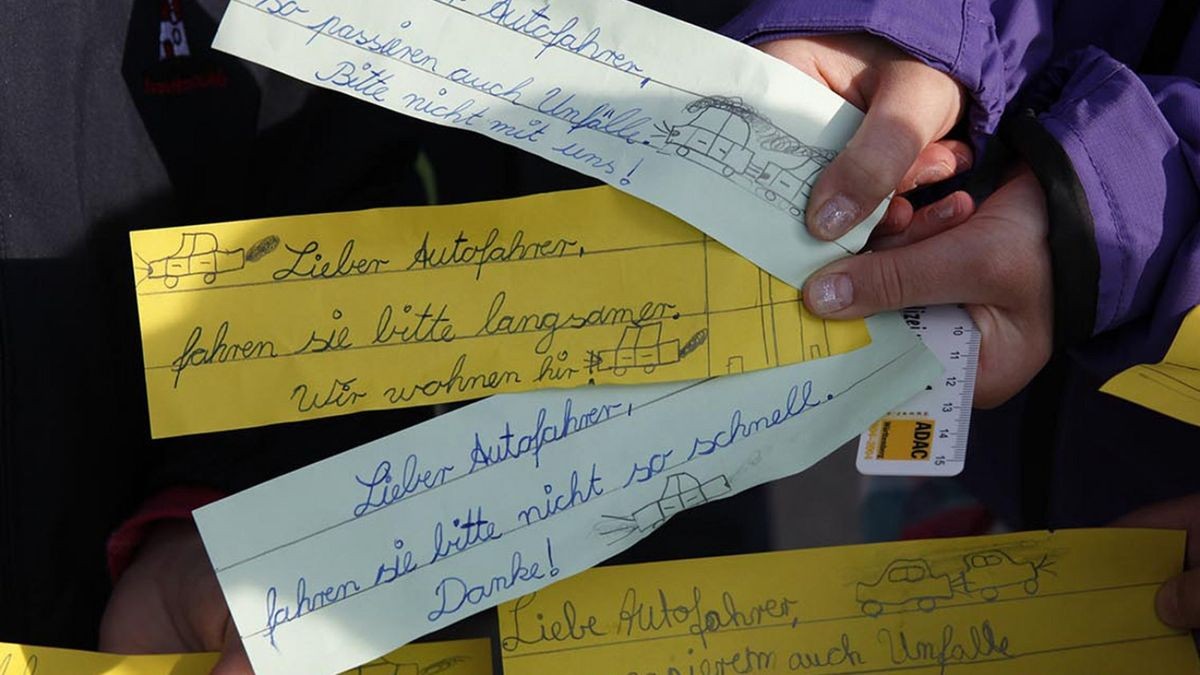 Autofahrer,
so passieren auch Unfälle.
Bitte nicht mit uns!
Lieber Autofahrer,
fahren sie bitte langsamer.
Wir wohnen hir!
Lieber Autofahrer,
fahren sie bitte nicht so schnell.
Danke!
Liebe Autofahrer,
auch Unfälle
10
11
12
13
14
15
ADAC
Württemberg